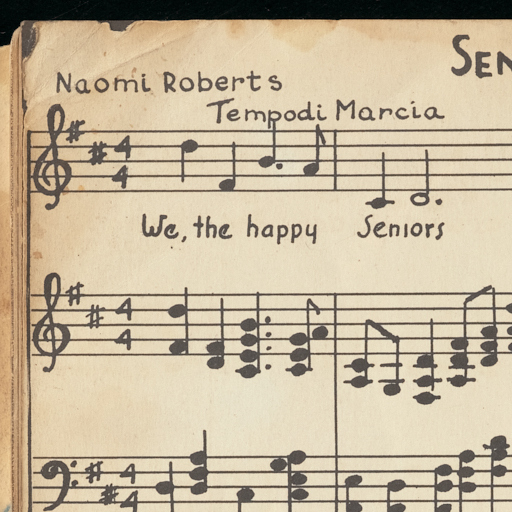 SEN
Naomi Roberts
Tempodi Marcia
4
4
We, the happy Seniors
4
4
4
4